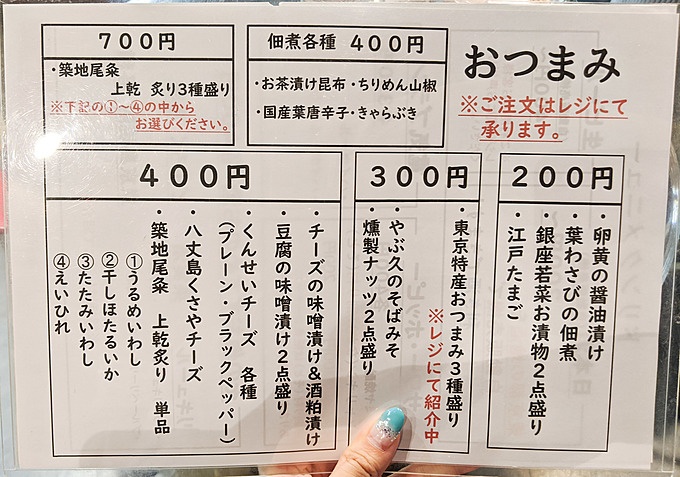 おつまみ
※ご注文はレジにて
承ります。
700円
・築地尾粂
上乾 炙り3種盛り
※下記の①~④の中から
お選びください。
佃煮各種 400円
・お茶漬け昆布・ちりめん山椒
・国産葉唐辛子・きゃらぶき
200円
・卵黄の醤油漬け
・葉わさびの佃煮
・銀座若菜お漬物2点盛り
・江戸たまご
300円
・東京特産おつまみ3種盛り
※レジにて紹介中
・やぶ久のそばみそ
・燻製ナッツ2点盛り
400円
・チーズの味噌漬け&酒粕漬け
・豆腐の味噌漬け2点盛り
・くんせいチーズ 各種
(プレーン・ブラックペッパー)
・八丈島くさやチーズ
・築地尾粂 上乾炙り 単品
①うるめいわし
②干しほたるいか
③たたみいわし
④えいひれ